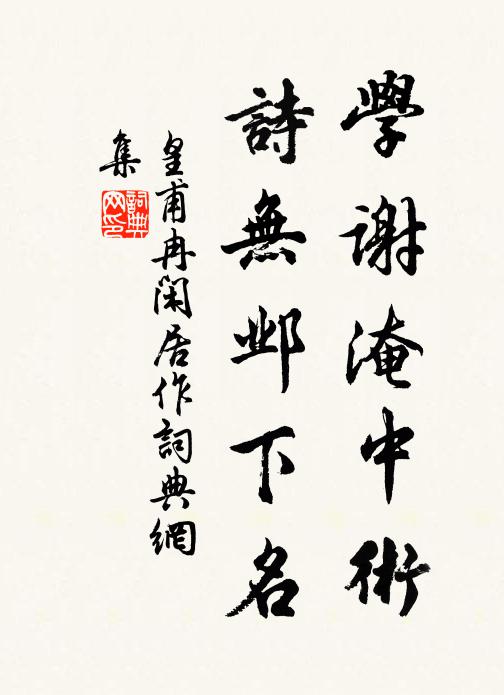 學謝淹中術
詩無鄴下名
皇甫冉閑居作詞典網
集
詞典
网印